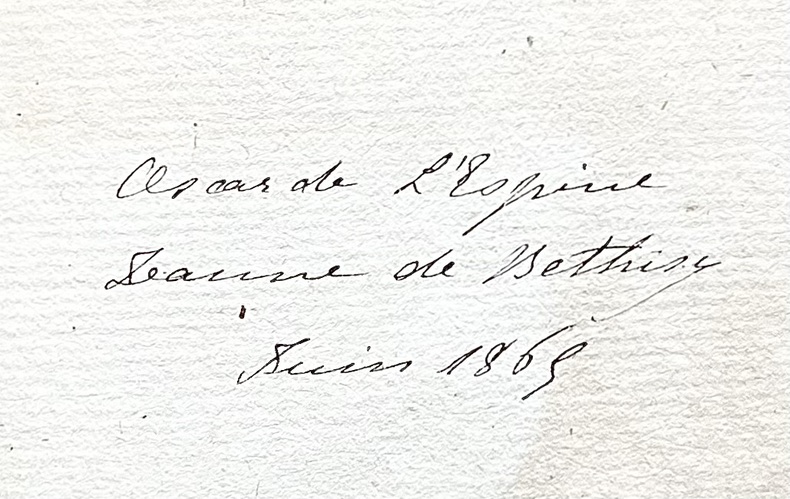 Oscar de L'Espine
Jeanne de Bethisy
Juin 1865